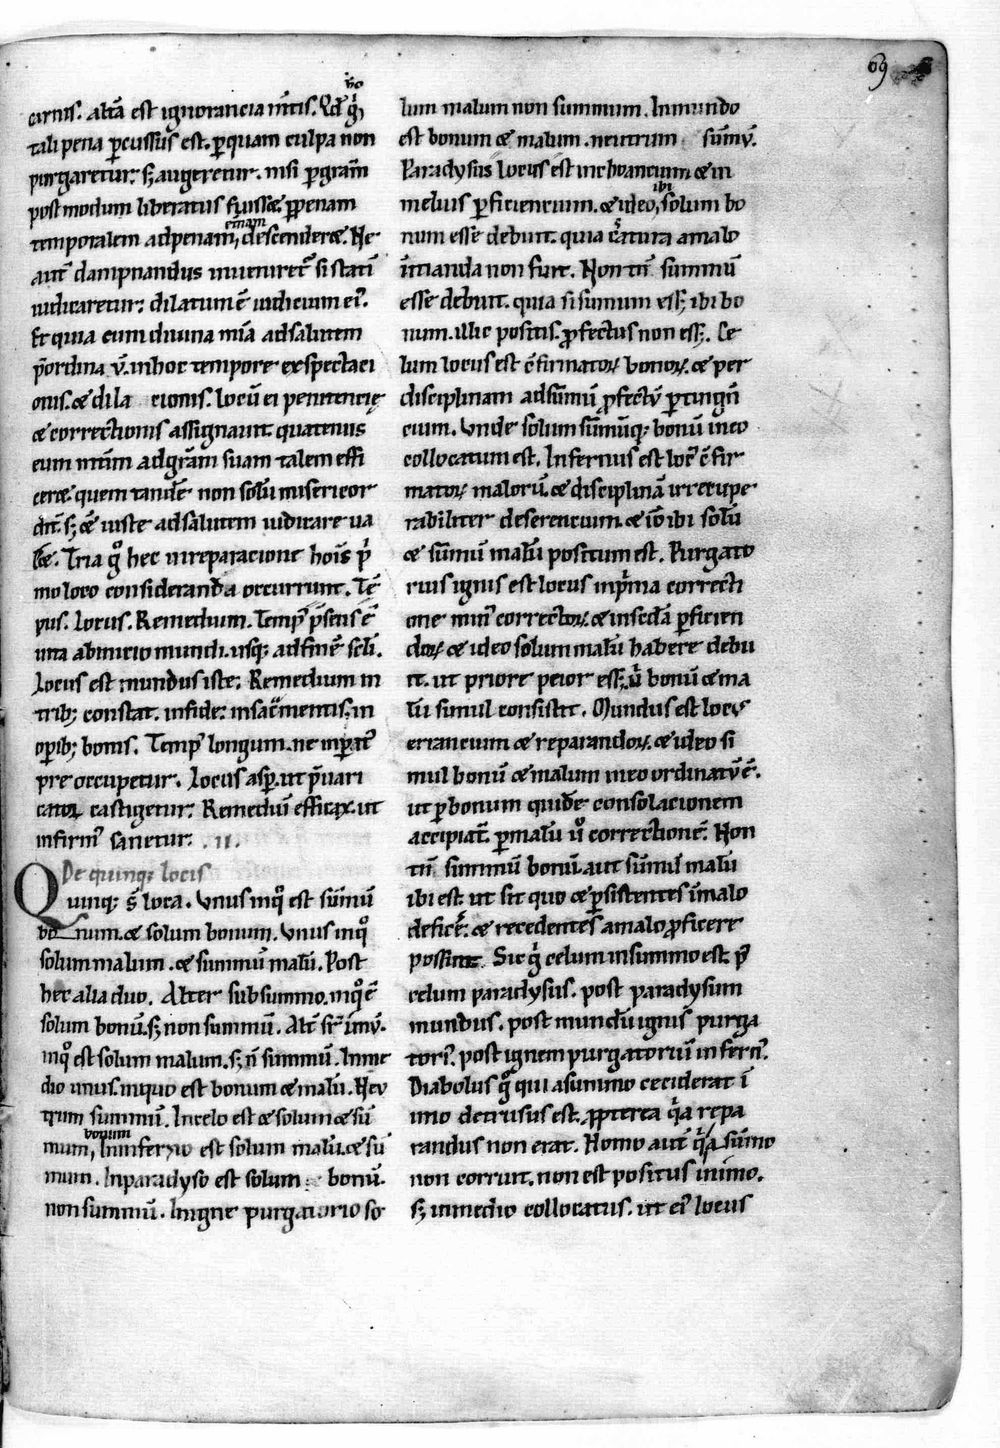 69
carnis. altã est ignorancia mtis. Qd̃ g̃ hõ
tali pena ꝑcussus est. ꝑquam culpa non
purgaretur: sꝫ augeretur. nisi ꝑgram̃
post modum liberatus fuisset. ꝑpenam
temporalem adpenam, etnam descenderet. Ne
aut̃ dampnandus inueniret᷑ si stati
iudicaretur: dilatum ẽ iudicium ei᷒.
Et quia eum diuina mĩa adsalutem
p̃ordina ũ. inhoc tempore exspectaci
onis. et dila cionis. locũ ei penitencię
et correctionis assignauit quatenus
eum mtim̃ adgram̃ suam talem effi
ceret quem tandẽ non solũ misericor
dit̃. sꝫ et̃ iuste adsalutem iudicare ua
let. Tria g̊ hec inreparacione hoĩs p̃
mo loco consideranda occurrunt. Tẽ
pus. Locus. Remedium. Temp᷒ p̃sens ẽ
uita abinicio mundi. usqꝫ adfinẽ scĺi.
Locus est mundus iste: Remedium in
tribꝫ constat. infide: insac̃mentis: in
oꝑibꝫ bonis. Temp᷒ longum. ne inꝑat᷒
pre occupetur. Locus asꝑ. ut p̃uari
cator castigetur: Remediũ efficax. ut
infirm᷒ sanetur. .II.
De quinqꝫ locis
Quinqꝫ s̃ loca. Unus inq̊ est sũmũ
bonum. et solum bonum. Unus inq̊
solum malum. et summũ malũ. Post
hec alia duo. Alter subsummo. inq̊ ẽ
solum bonũ. sꝫ non summũ. Alt̃ sr̃ imũ.
inq̊ est solum malum. sꝫ ñ summũ. Inme
dio unus. inquo est bonum et malũ. Neu
trum summũ. Incelo est et solum et sũ
mum, bonum Ininferno est solum malũ. et sũ
mum. Inparadyso est solum bonũ.
non summũ. Inigne purgatorio so
lum malum non summum. Inmundo
est bonum et malum. neutrum sum̃ũ.
Paradysus locus est inchoancium et in
melius ꝑficiencium. et ideo, ibi solum bo
num esse debuit. quia c̃atura amalo
ĩtianda non fuit. Non tñ summũ
esse debuit. quia si sumum essꝫ ibi bo
num. illic positis. ꝓfectus non essꝫ. Ce
lum locus est c̃firmatoꝝ bonoꝝ. et per
disciplinam adsũmũ ꝓfectũ ꝑtingñ
cium. Unde solum sũmũqꝫ bonũ ineo
collocatum est. Infernus est loc᷒ c̃fir
matoꝝ maloru᷒. et disciplinã irrecupe
rabiliter deserencium. et iõ ibi solũ
et sũmũ malũ positum est. Purgato
rius ignis est locus inp̃ma correcti
one min᷒ correctoꝝ. et insedã ꝑficien
doꝝ et ideo solum malũ habere debu
it. ut priore peior essꝫ. ũ bonũ et ma
lũ simul consistit. Mundus est locus
errancium et reparandoꝝ. et ideo si
mul bonũ et malum ineo ordinatũ ẽ.
ut ꝑ bonum quidẽ consolacionem
accipiat̃. ꝑmalũ ů correctionẽ. Non
tñ summũ bonũ. aut sũmũ malũ
ibi est. ut sit quo et ꝑsistentes ĩmalo
deficẽ. et recedentes amalo ꝓficere
possint. Sic g̊ celum insummo est. p᷒
celum paradysus. post paradysum
mundus. post mundũ ignis purga
tori᷒. post ignem purgatoriũ infern᷒.
Diabolus g̊ qui asummo ceciderat ĩ
imo detrusus est. ꝓpterea q̃a repa
randus non erat. Homo aut̃ q̃a sũmo
non corruit. non est positus inimo.
sꝫ inmedio collocatus. ut ei᷒ locus